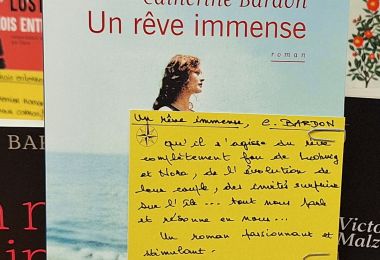 LOST
Catherine Bardon
Un rêve immense
roman
Un rêve immense, C. BARDON
qu'il s'agisse du rêve
complètement fou de Ludwig
et Nora, de l'évolution de
leur couple, des invités surprise
sur l'île... tout nous parle
et résonne en nous...
Un roman passionnant et
stimulant.
BAR
Victo
Malz